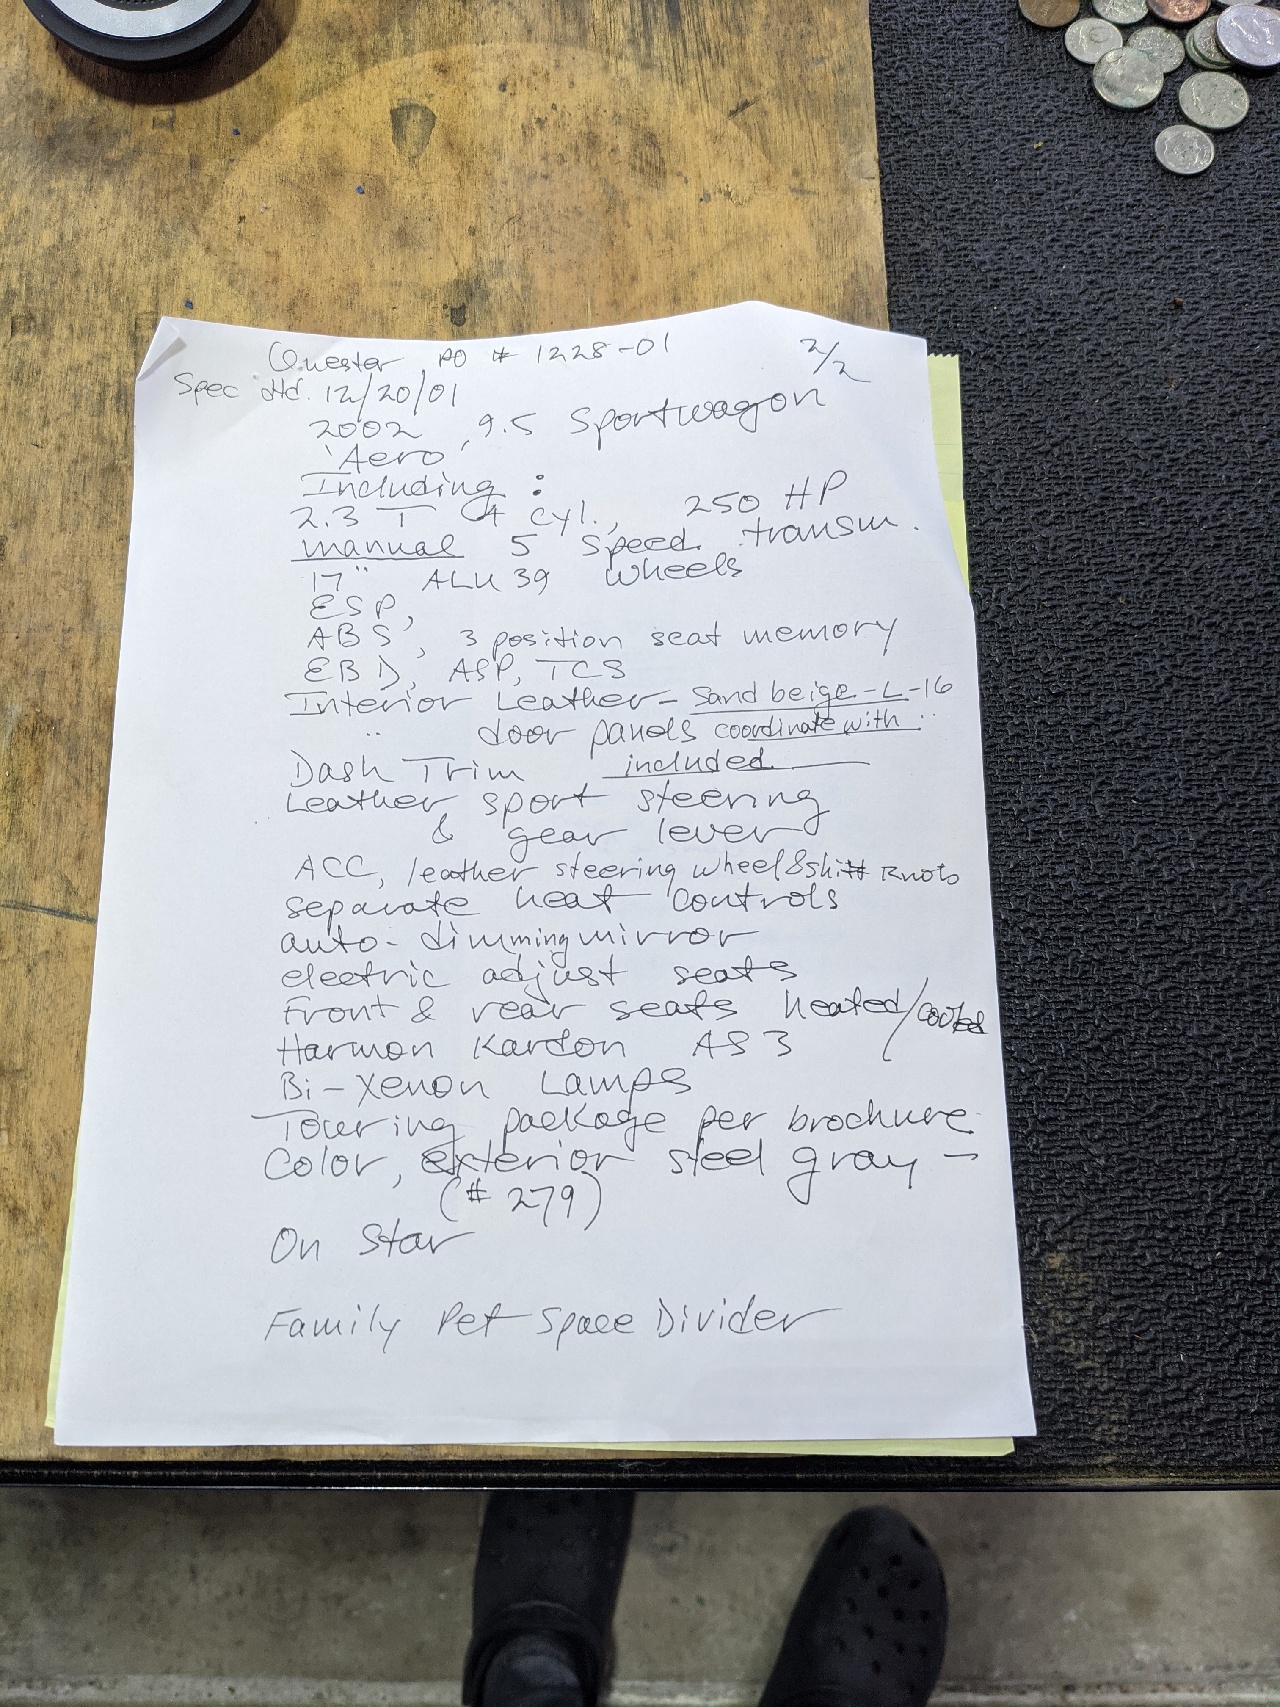 Quester PO # 1228-01 2/2
Spec dtd. 12/20/01
2002, 9.5 Sportwagon
'Aero
Including :
2.3 T 4 cyl., 250 HP
manual 5 speed transm.
17" ALU 39 wheels
ESP,
ABS, 3 position seat memory
EBD, ASP, TCS
Interior Leather - Sand beige - L-16
" door panels coordinate with "
Dash Trim included
Leather sport steering
& gear lever
ACC, leather steering wheel & shift Knob
separate heat controls
auto-dimming mirror
electric adjust seats
Front & rear seats heated/cooled
Harmon Kardon AS3
Bi-Xenon Lamps
Touring package per brochure
Color, exterior steel gray -
(# 279)
On Star
Family Pet Space Divider